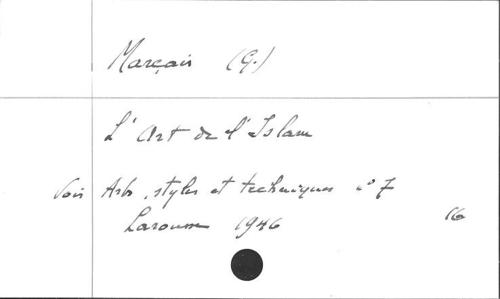 Marçais (G.)
L'Art de l'Islam
Voir Arts, styles et techniques n° 7
Larousse 1946 16